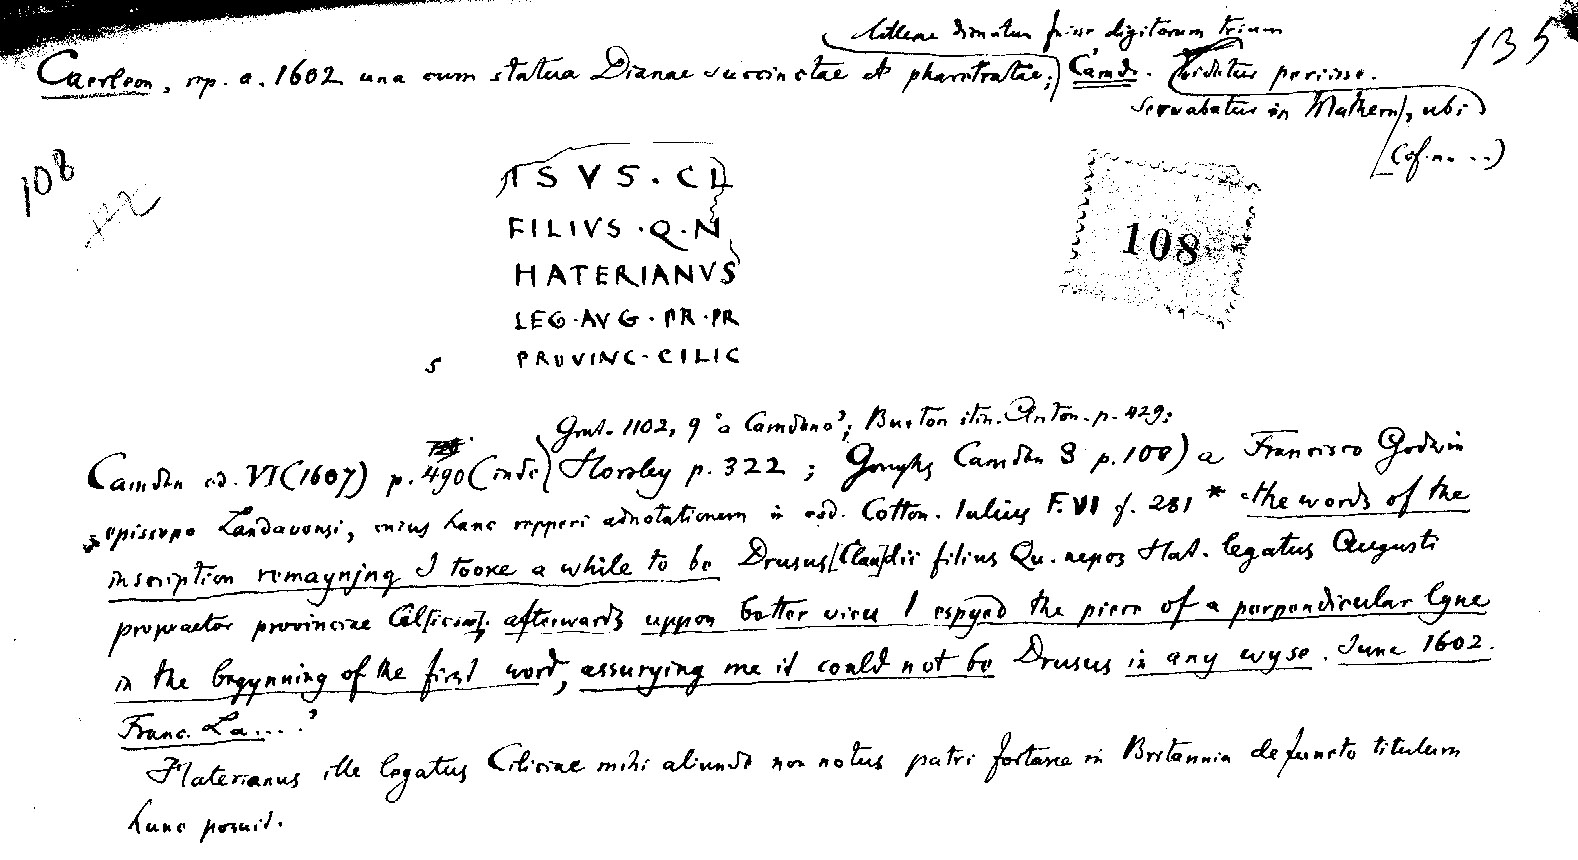 135
litterae dimidium fuisse digitorum trium
Caerleon, rep. a. 1602 una cum statua Dianae succinctae et pharetratae; Camd. videtur periisse.
servabatur in Mathern, ubi
(cf. n. ...)
108
TSVS . CL
FILIVS . Q . N
HATERIANVS
LEG . AVG . PR . PR
5 PROVINC . CILIC
108
Grut. 1102, 9 'a Camdeno'; Burton itin. Anton. p. 429;
Camden ed. VI (1607) p. 490 (inde Horsley p. 322 ; Goughs Camden 3 p. 108) a Francisco Godwin
episcopo Landavensi, cuius hanc repperi adnotationem in cod. Cotton. Iulius F. VI f. 281 * 'the words of the
inscription remaynjng I tooke a while to be Drusus [Clau]dii filius Qu. nepos Hat. legatus Augusti
propraetor provinciae Cil[iciae]; afterwards uppon better view I espyed the piece of a perpendicular lyne
in the begynning of the first word, assurying me it could not be Drusus in any wyse. June 1602.
Franc. La....'
Haterianus ille legatus Ciliciae mihi aliunde non notus patri fortasse in Britannia defuncto titulum
hunc posuit.